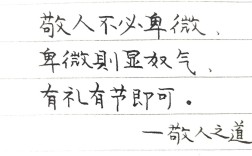 敬人不必卑微、
卑微则显奴气、
有礼有节即可。
一敬人之道